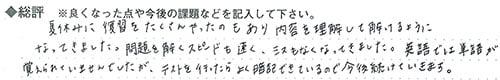 ◆総評 ※良くなった点や今後の課題などを記入して下さい。
夏休みに復習をたくさんやったのもあり内容を理解して解けるように
なってきました。問題を解くスピードも速く、ミスもなくなってきました。英語では単語が
覚えられていませんでしたが、テストを行ったらよく暗記できているので今後続けていきます。